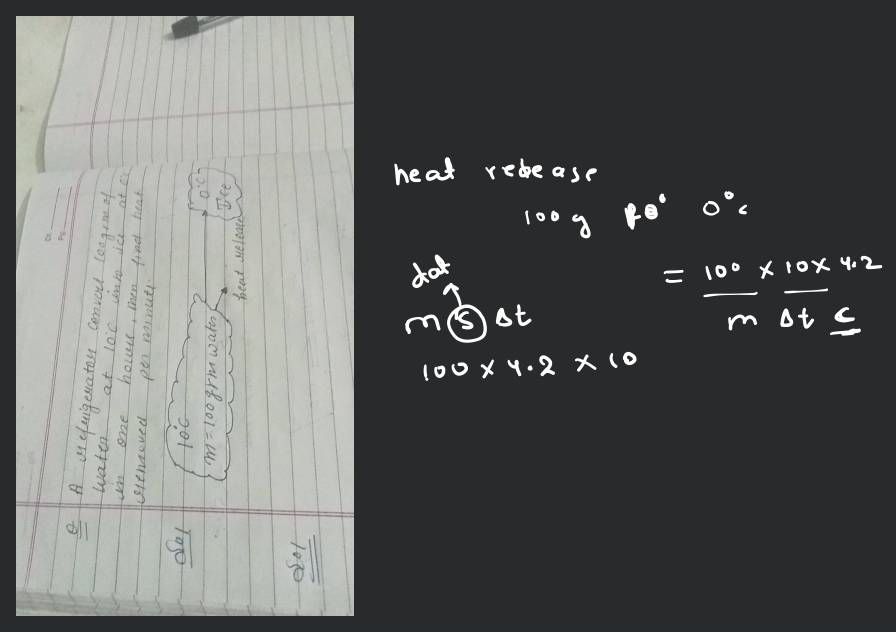 Q A refrigerator convert 100 gm of
water at 10c into ice at
in one hours, then find heat
removed per minute.
Sol
10°C
m = 100 gm water
0°C
Ice
heat release
Sol
heat rebease
100g 0°c
m S Δt
100 x 4.2 x 10
= 100 x 10 x 4.2
m Δt c